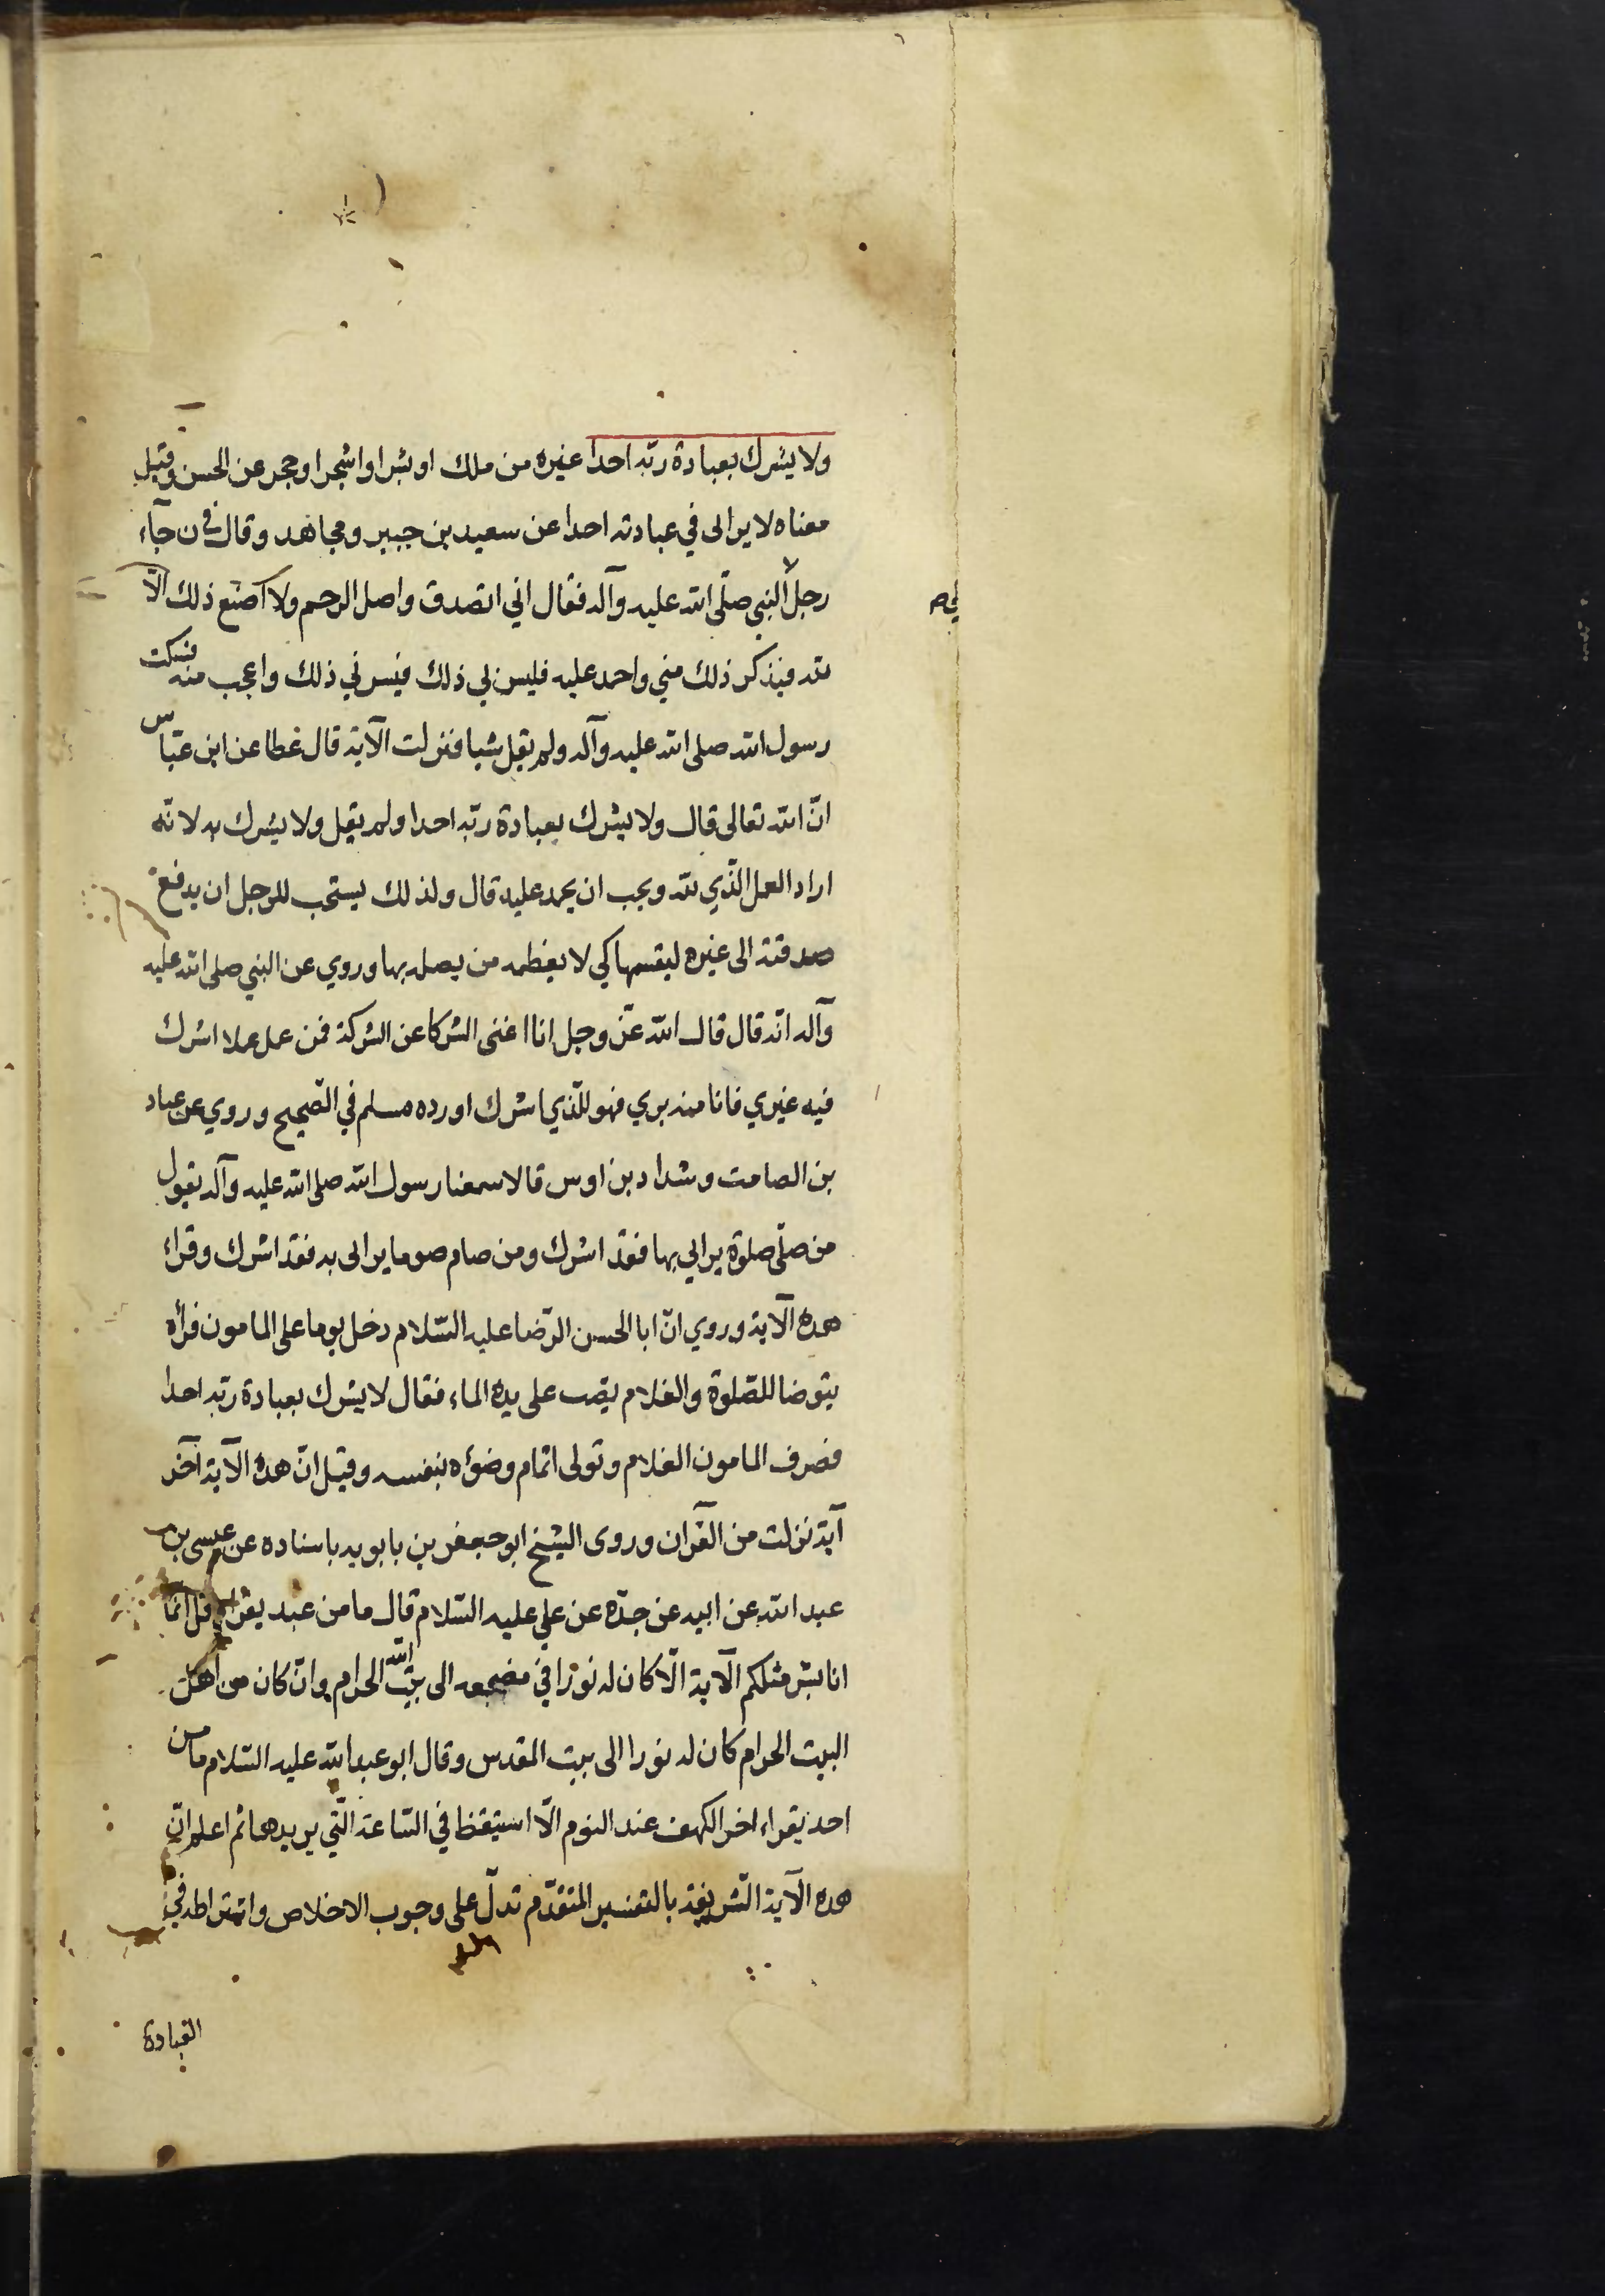 ولا يشرك بعبادة ربّه احدا غيره من ملك او بشر او اشجر او حجر عن الحسن وقيل
معناه لا يرائى في عبادته احدا عن سعيد بن جبير ومجاهد وقال في ن جآء
رجل النبي صلّى الله عليه وآله فقال اني اتصدق واصل الرحم ولا اصنع ذلك الّا
لله فيذكر ذلك مني واحمد عليه فليس لي ذلك فيسرني ذلك واعجب منه فسكت
رسول الله صلى الله عليه وآله ولم يقل شيا فنزلت الآية قال عطا عن ابن عبّاس
انّ الله تعالى قال ولا يشرك بعبادة ربّه احدا ولم يقل ولا يشرك به لانّه
اراد العمل الّذي لله ويجب ان يحمد عليه قال ولذلك يستحب للرجل ان يدفع
صدقته الى غيره ليقسمها كي لا يعظمه من يصله بها وروي عن النبي صلى الله عليه
وآله انّه قال قال الله عزّ وجل انا اغنى الشركا عن الشركة فمن عمل عملا اشرك
فيه غيري فانا منه بري فهو للّذي اشرك اورده مسلم في الصّحيح وروي عن عباد
بن الصامت وشداد بن اوس قالا سمعنا رسول الله صلى الله عليه وآله يقول
من صلّى صلوة يرائي بها فقد اشرك ومن صام صوما يرائى به فقد اشرك وقراء
هذه الآية وروي انّ ابا الحسن الرّضا عليه السّلام دخل يوما على المامون فرأه
يتوضا للصّلوة والغلام يصب على يده الماء فقال لا يشرك بعبادة ربّه احدا
فصرف المامون الغلام وتولى اتمام وضوئه بنفسه وقيل انّ هذه الآية آخر
آية نزلت من القرآن وروى الشيخ ابو جعفر بن بابويه باسناده عن عيسى بن
عبد الله عن ابيه عن جدّه عن علي عليه السّلام قال ما من عبد يقرا قل انّما
انا بشر مثلكم الآية الّا كان له نورا في مضجعه الى بيت الله الحرام وانّ كان من اهل
البيت الحرام كان له نورا الى بيت المقدس وقال ابو عبد الله عليه السّلام ما من
احد يقراء اخر الكهف عند النوم الّا استيقظ في السّاعة الّتي يريدها ثم اعلم انّ
هذه الآية الشريفة بالتفسير المتقدّم تدلّ على وجوب الاخلاص واشتراطه في
العبادة